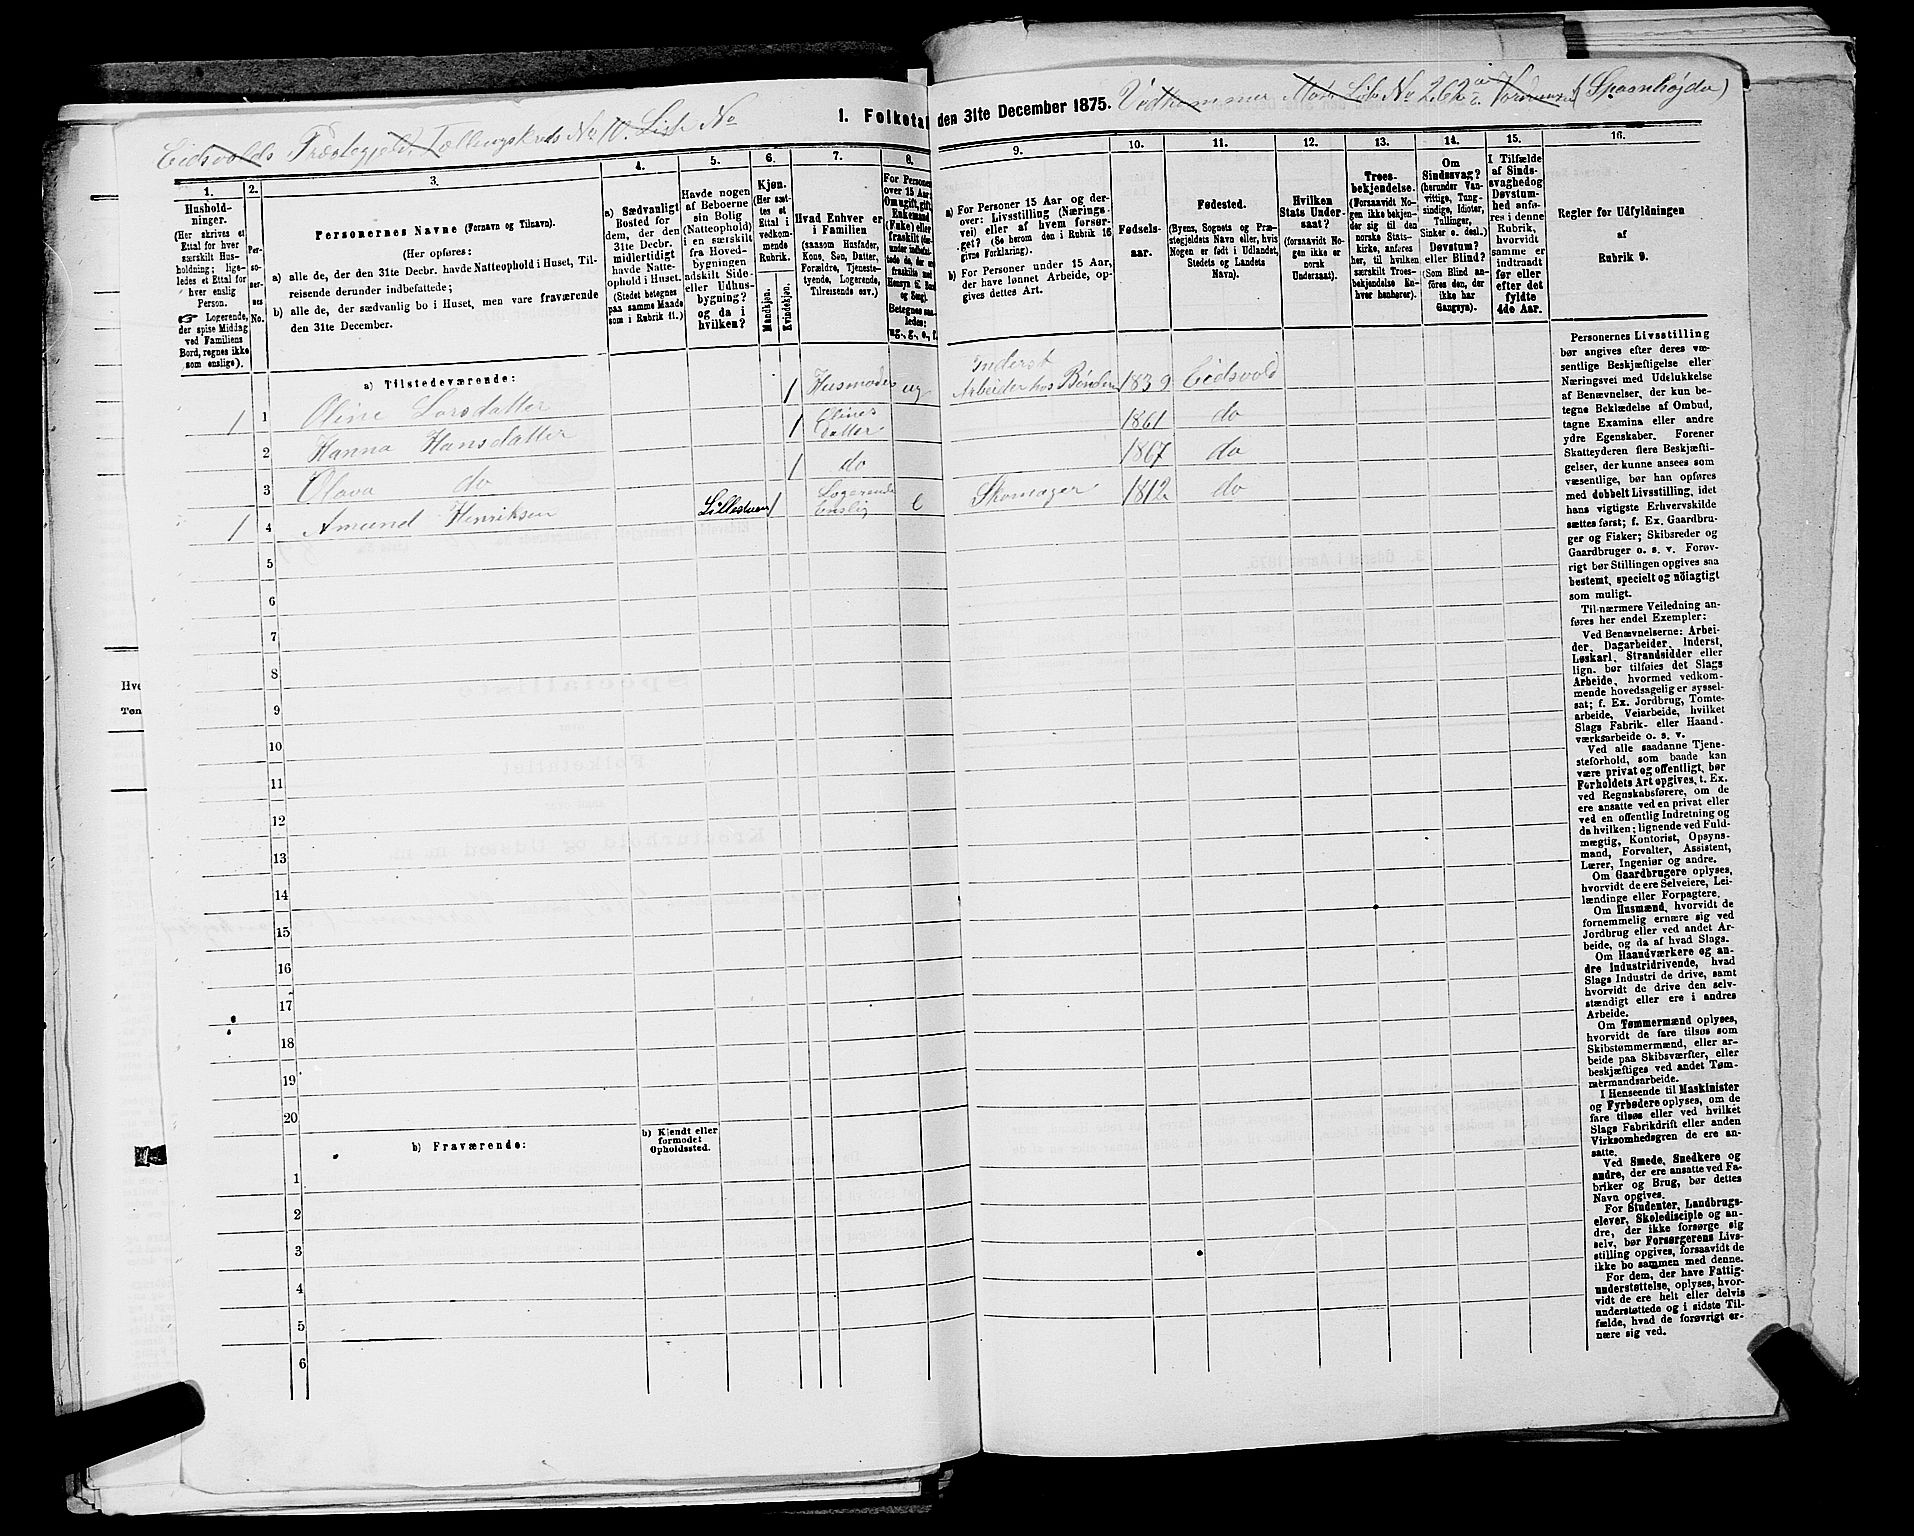 1. Folketa den 31te December 1875. Vedkommer Liste No 262a (Spaanhøjda)
Eidsvolds Præstegjeld, Tællingskreds No 10. Liste No
1.
2.
3.
4.
5.
6.
7.
8.
9.
10.
11.
12.
13.
14.
15.
16.
Hushold-
ninger.
(Her skrives et
Ettal for hver
særskilt Hus-
holdning; lige-
ledes et Ettal for
hver enslig
Person.
☞ Logerende,
der spise Middag
ved Familiens
Bord, regnes ikke
som enslige).
Per-
so-
ner-
nes
No.
Personernes Navne (Fornavn og Tilnavn).
(Her opføres:
a) alle de, der den 31te Decbr. havde Natteophold i Huset, Til-
reisende derunder indbefattede;
b) alle de, der sædvanlig bo i Huset, men vare fraværende
den 31te December.
a) Sædvanligt
Bosted for
dem, der den
31te Decbr.
midlertidigt
havde Natte-
ophold i Huset.
(Stedet betegnes
paa samme Maade
som i Rubrik 11.)
Havde nogen
af Beboerne
sin Bolig
(Natteophold)
i en særskilt
fra Hoved-
bygningen
adskilt Side-
eller Udhus-
bygning?
og da i
hvilken?
Kjøn.
(Her sæt-
tes et
Ettal i
vedkom-
mende
Rubrik.
Mandkjøn.
Kvindekjøn.
Hvad Enhver er
i Familien
(saasom Husfader,
Kone, Søn, Datter,
Forældre, Tjeneste-
tyende, Logerende,
Tilreisende osv.)
For Personer
over 15 Aar:
Om ugift, gift,
Enkemand
(Enke) eller
fraskilt
Betegnes saa-
ledes:
ug., g., e., f.
a) For Personer 15 Aar og der-
over: Livsstilling (Nærings-
vei) eller af hvem forsør-
get? (Se herom den i Rubrik 16
givne Forklaring).
b) For Personer under 15 Aar,
der have lønnet Arbeide, op-
gives dettes Art.
Fødsels-
aar.
Fødested.
(Byens, Sognets og Præ-
stegjeldets Navn eller, hvis
Nogen er født i Udlandet,
Stedets og Landets
Navn).
Hvilken
Stats Under-
saat?
(forsaavidt No-
gen ikke er
norsk
Undersaat).
Troes-
bekjendelse.
(Forsaavidt No-
gen ikke bekjen-
der sig til den
norske Stats-
kirke, anføres
her, til hvilken
særskilt Troes-
bekjendelse En-
hver henhører).
Om
Sindssvag?
(herunder Van-
vittige, Tung-
sindige, Idioter,
Tullinger,
Sinker o. desl.)
Døvstum?
eller Blind?
(Som Blind an-
føres den, der
ikke har
Gangsyn).
I Tilfælde
af Sinds-
svaghed og
Døvstum-
hed anfø-
res i denne
Rubrik,
hvorvidt
samme er
indtraadt
før eller
efter det
fyldte
4de Aar.
Regler for Udfyldningen
af
Rubrik 9.
a) Tilstedeværende:
1 1 Oline Larsdatter 1 Husmoder ug Inderst Arbeider hos Bønder 1839 Eidsvold
2 Hanna Hansdatter 1 Olines datter 1861 do
3 Olava do 1 do 1867 do
1 4 Amund Henriksen Lillestuen 1 Logerende Enslig e Skomager 1812 do
5
6
7
8
9
10
11
12
13
14
15
16
17
18
19
20
b) Fraværende:
b) Kjendt eller
formodet
Opholdssted.
1
2
3
4
5
6
Personernes Livsstilling
bør angives efter deres væ-
sentlige Beskjæftigelse eller
Næringsvei med Udelukkelse
af Benævnelser, der kun be-
tegne Beklædelse af Ombud,
tagne Examina eller andre
ydre Egenskaber. Forener
Skatteyderen flere Beskjæfti-
gelser, der kunne ansees som
væsentlige, bør han opføres
med dobbelt Livsstilling, idet
hans vigtigste Erhvervskilde
sættes først; f. Ex. Gaardbru-
ger og Fisker; Skibsreder og
Gaardbruger o. s. v. Forøv-
rigt bør Stillingen opgives saa
bestemt, specielt og nöiagtigt
som muligt.
Til nærmere Veiledning an-
føres her endel Exempler:
Ved Benævnelserne: Arbei-
der, Dagarbeider, Inderst,
Løskarl, Strandsidder eller
lign. bør tilføies det Slags
Arbeide, hvormed vedkom-
mende hovedsagelig er syssel-
sat; f. Ex. Jordbrug, Tomte-
arbeide, Veiarbeide, hvilket
Slags Fabrik- eller Haand-
værksarbeide o. s. v.
Ved alle saadanne Tjene-
steforhold, som baade kan
være privat og offentligt, bør
Forholdets Art opgives, t. Ex.
ved Regnskabsførere, om de
ere ansatte ved en privat eller
ved en offentlig Indretning og
da hvilken; lignende ved Fuld-
mægtig, Kontorist, Opsyns-
mand, Forvalter, Assistent,
Lærer, Ingeniør og andre.
Om Gaardbrugere oplyses,
hvorvidt de ere Selveiere, Lei-
lændinge eller Forpagtere.
Om Husmænd, hvorvidt de
fornemmelig ernære sig ved
Jordbrug eller ved andet Ar-
beide, og da af hvad Slags.
Om Haandværkere og an-
dre Industridrivende, hvad
Slags Industri de drive, samt
hvorvidt de drive den selv-
stændigt eller ere i andres
Arbeide.
Om Tømmermænd oplyses,
hvorvidt de fare tilsøs som
Skibstømmermænd, eller ar-
beide paa Skibsværfter, eller
beskjæftiges ved andet Tøm-
mermandsarbeide.
I Henseende til Maskinister
og Fyrbødere oplyses, om de
fare tilsøs eller ved hvilket
Slags Fabrikdrift eller anden
Virksomhedsgren de ere an-
satte.
Ved Smede, Snedkere og
andre, der ere ansatte ved Fa-
briker og Brug, bør dettes
Navn opgives.
For Studenter, Landbrugs-
elever, Skoledisciple og an-
dre, der ikke forsørge sig
selv, bør Forsørgerens Livs-
stilling opgives, forsaavidt de
ikke bo sammen med denne.
For dem, der have Fattig-
understøttelse, oplyses, hvor-
vidt de ere helt eller delvis
understøttede og i sidste Til-
fælde, hvad de forøvrigt er-
nære sig ved.